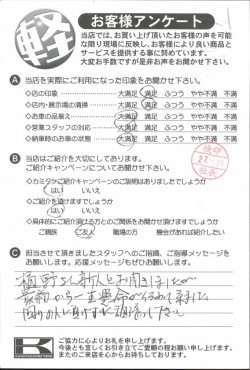 軽
お客様アンケート
当店では、お買い上げ頂いたお客様の声を可能
な限り現場に反映し、お客様により良い商品と
サービスを提供する事に努めています。
大変お手数ですが是非お声をお聞かせ下さい。
A 当店を実際にご利用になった印象をお聞かせ下さい。
◇店の印象 大満足 満足 ふつう やや不満 不満
◇店内・展示場の清掃 大満足 満足 ふつう やや不満 不満
◇お車の品揃え 大満足 満足 ふつう やや不満 不満
◇営業スタッフの対応 大満足 満足 ふつう やや不満 不満
◇納車時のお車の状態 大満足 満足 ふつう やや不満 不満
B 当店はご紹介を大切にしております。
ご紹介キャンペーンについてお聞かせ下さい。
◇カミタケご紹介キャンペーンのご説明はありましたでしょうか
はい いいえ
◇ご紹介を頂けますでしょうか
はい いいえ
◇具体的にご紹介頂ける方とのご関係をお聞かせ頂けますでしょうか
ご親戚 ご友人 職場の方 機会があれば紹介したい
検印
社長
C 担当させて頂きましたスタッフへのご指摘、ご指導メッセージを
お願いします。応援メッセージもぜひお願いします。
さん新人とお聞きしましたが
最初から一生懸命
下さい
K
ご協力に心よりお礼を申し上げます。
今後とも宜しくお引き立てご愛顧の程お願い申し上げます。
またのご来店を心からお待ちしております。